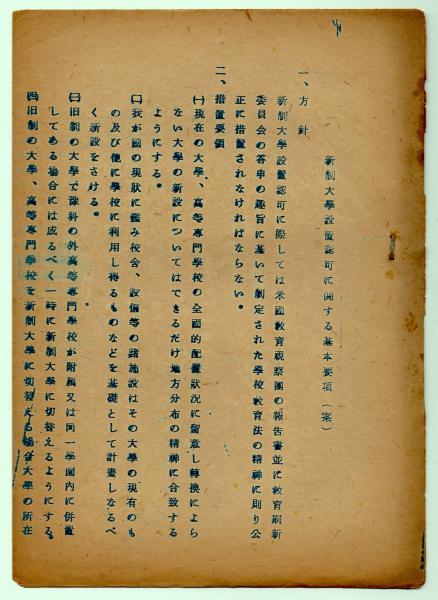 新制大學設置認可に関する基本要項（案）
一、方針
新制大學設置認可に際しては米國教育視察團の報告書並に教育刷新
委員会の答申の趣旨に基いて制定された學校教育法の精神に則り公
正に措置されなければならない。
二、措置要領
㈠現在の大學、高等專門學校の全國的配置狀況に留意し轉換によら
ない大學の新設についてはできるだけ地方分布の精神に合致する
ようにする。
㈡我が國の現狀に鑑み校舎、設備等の諸施設はその大學の現有のも
の及び他に學校に利用し得るものなどを基礎として計畫しなるべ
く新設をさける。
㈢旧制の大學で豫科の外高等專門學校が附属又は同一學園内に併置
してある場合には成るべく一時に新制大學に切替えるようにする。
㈣旧制の大學、高等專門學校を新制大學に切替える場合大學の所在